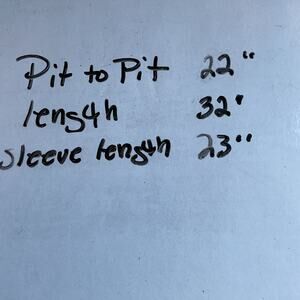 Pit to Pit 22"
length 32"
sleeve length 23"